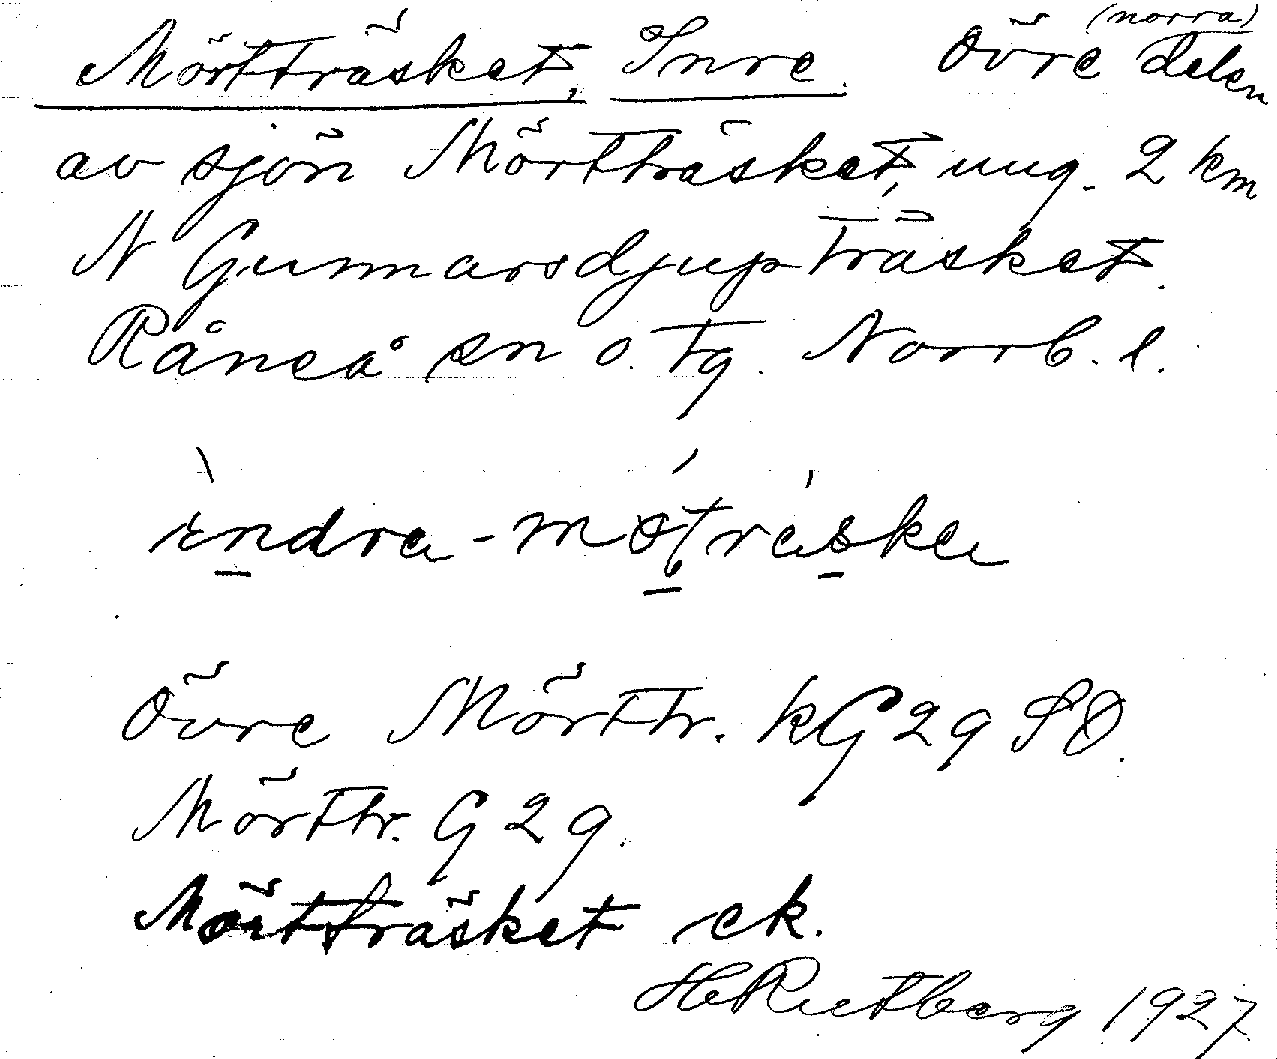 Mörtträsket, Inre. Övre (norra) delen
av sjön Mörtträsket, ung. 2 km
N Gunnarsdjupträsket.
Råneå sn o. tg. Norrb. l.
Övre Mörttr. kG 29 SO.
Mörttr. G 29.
Mörtträsket ek.
H Rutberg 1927